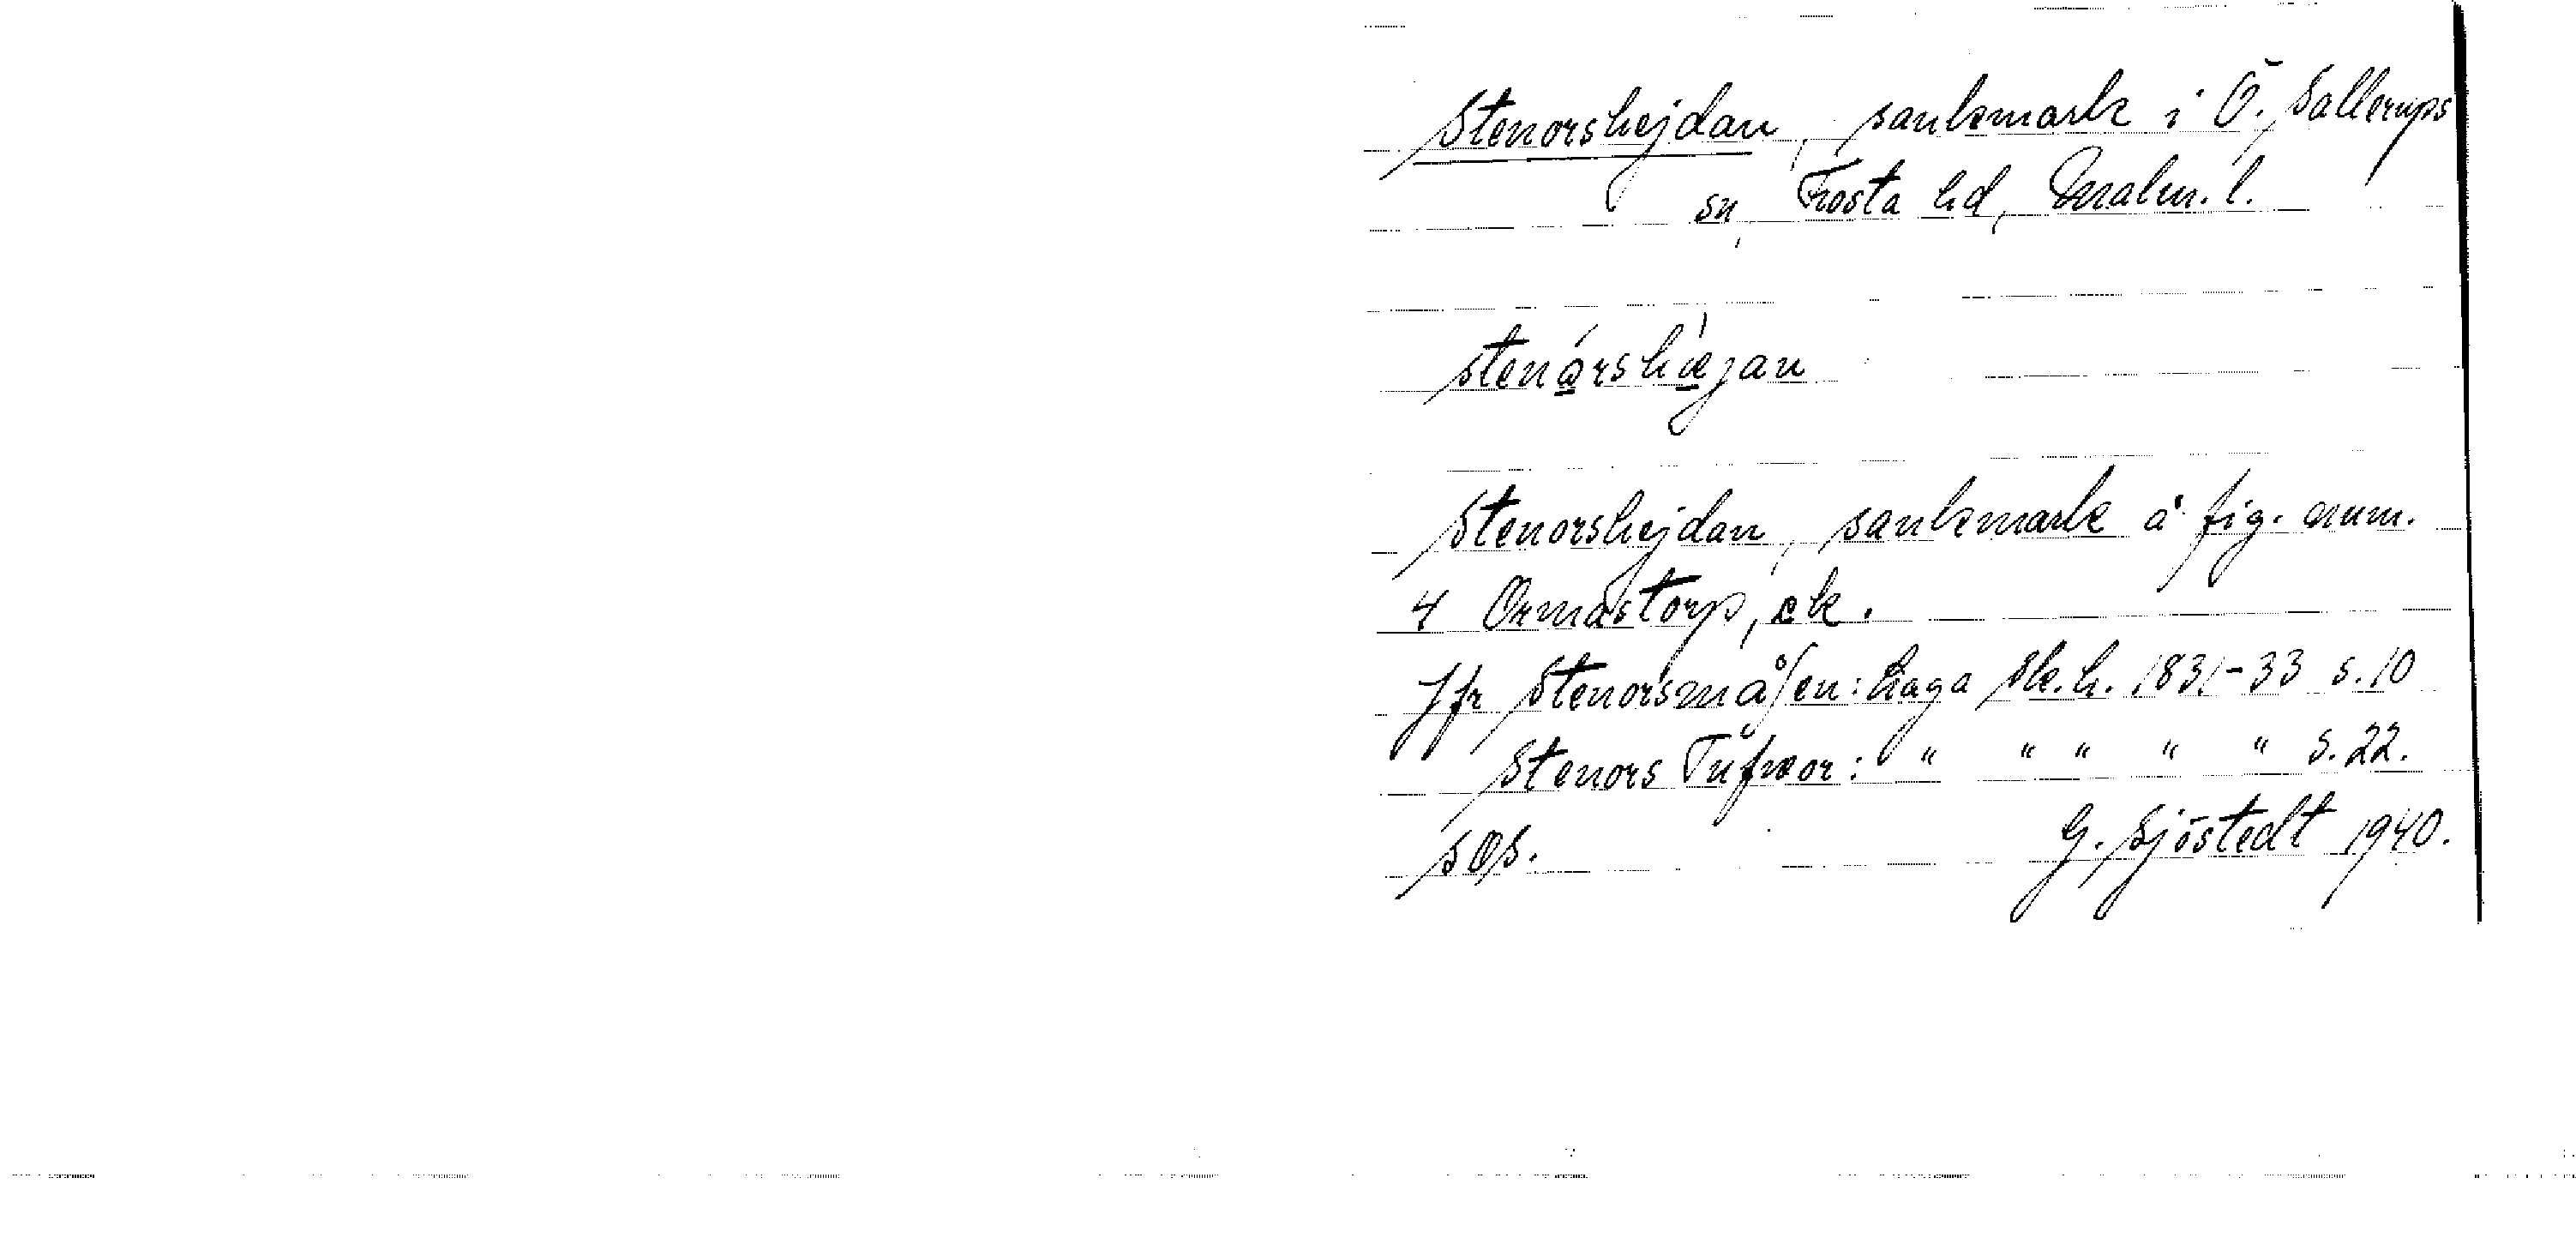 Stenorshejdan, sankmark i Ö. Sallerups
sn, Frosta hd, Malm. l.
stenårshæjan
Stenorshejdan, sankmark å fig. num.
4 Ormastorp, ek.
Jfr Stenorsmåsen: Laga sk.h. 1831-33 s. 10
Stenors Tufvor: " " " " " s. 22.
sOs. G. Sjöstedt 1940.